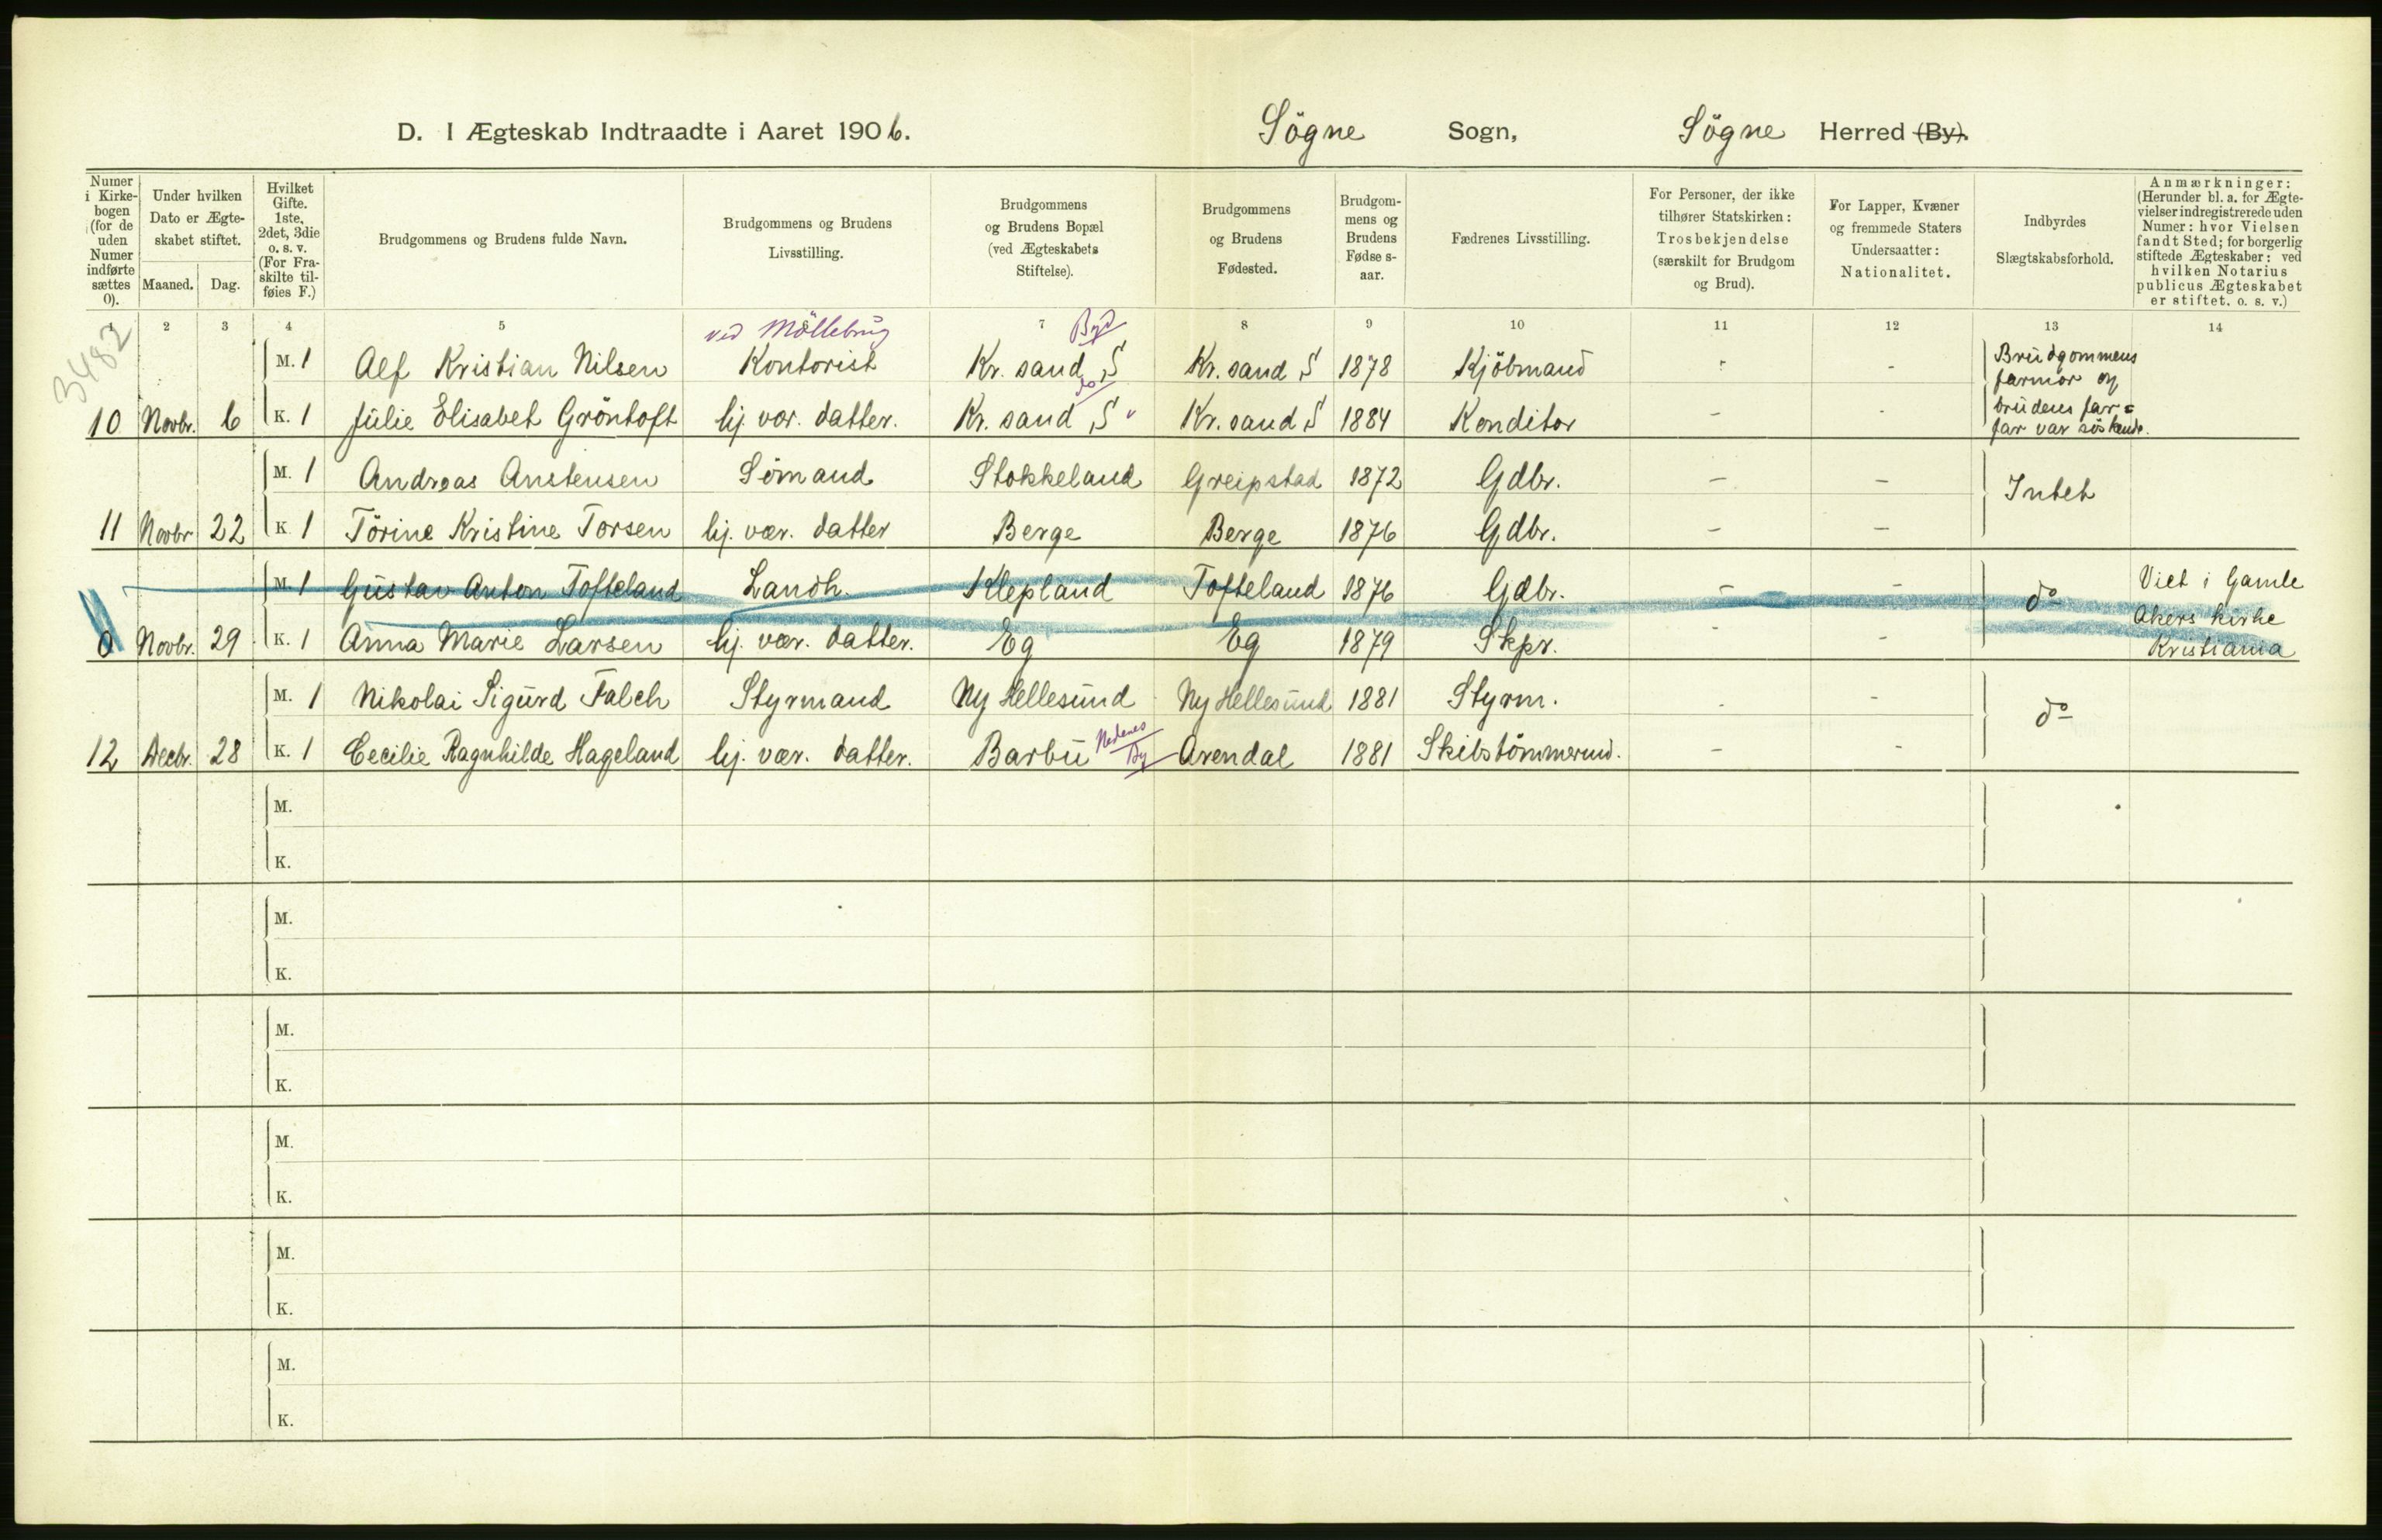 D. I Ægteskab Indtraadte i Aaret 1906. Søgne Sogn, Søgne Herred (By).
Numer i Kirkebogen (for de uden Numer indførte sættes 0).
Under hvilken Dato er Ægteskabet stiftet.
Maaned. Dag.
Hvilket Gifte. 1ste, 2det, 3die o. s. v. (For Fraskilte tilføies F.)
Brudgommens og Brudens fulde Navn.
Brudgommens og Brudens Livsstilling.
Brudgommens og Brudens Bopæl (ved Ægteskabets Stiftelse).
Brudgommens og Brudens Fødested.
Brudgommens og Brudens Fødselsaar.
Fædrenes Livsstilling.
For Personer, der ikke tilhører Statskirken: Trosbekjendelse (særskilt for Brudgom og Brud).
For Lapper, Kvæner og fremmede Staters Undersaatter: Nationalitet.
Indbyrdes Slægtskabsforhold.
Anmærkninger: (Herunder bl. a. for Ægtevielser indregistrerede uden Numer: hvor Vielsen fandt Sted; for borgerlig stiftede Ægteskaber: ved hvilken Notarius publicus Ægteskabet er stiftet, o. s. v.)
2 3 4 5 7 8 9 10 11 12 13 14
3482
ved Möllebrug
M. 1 Alf Kristian Nilsen Kontorist Kr. sand S Kr. sand S 1878 Kjöbmand - - Brudgommens farmor og
10 Novbr. 6 K. 1 Julie Elisabet Gröntoft hj. vær. datter. Kr. sand S Do Kr. sand S 1884 Konditor - - brudens farfar var söskende.
M. 1 Andreas Anstensen Sömand Stokkeland Greipstad 1872 Gdbr. - - Intet
11 Novbr 22 K 1 Törine Kristine Torsen hj. vær. datter Berge Berge 1876 Gdbr. - -
M. 1 Gustav Anton Tofteland Landh. Klepland Tofteland 1876 Gdbr. - - do Viet i Gamle
0 Novbr. 29 K. 1 Anna Marie Larsen hj. vær. datter. Eg Eg 1879 Skpr. - - Akers kirke Kristiania
M. 1 Nikolai Sigurd Falch Styrmand Ny Hellesund Ny Hellesund 1881 Styrm. - - do
12 Decbr. 28 K. 1 Cecilie Ragnhilde Hageland hj. vær. datter. Barbu Nedenes By Arendal 1881 Skibstömmermd. - -
M.
K.
M.
K.
M.
K.
M.
K.
M.
K.
M.
K.